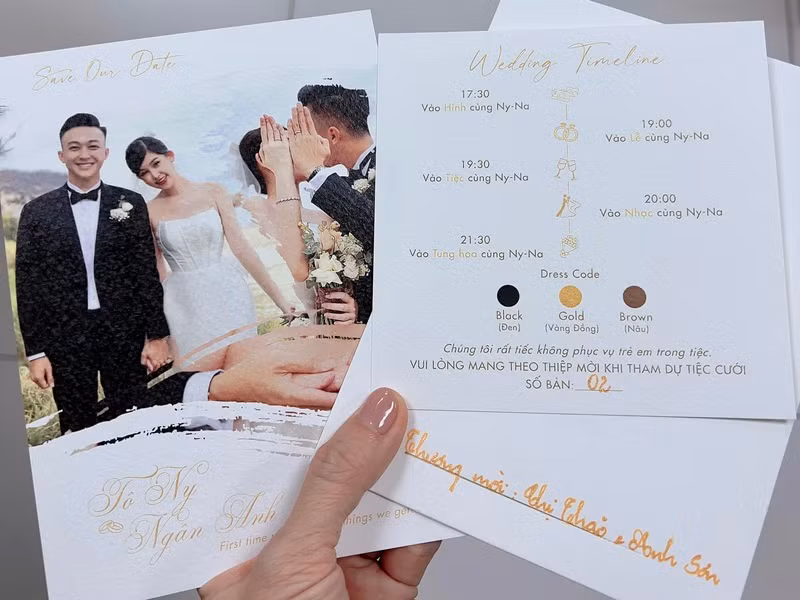 Save Our Date
Tô Ny
Ngân Anh
First time
things we get
Wedding Timeline
17:30
Vào Hình cùng Ny-Na
19:00
Vào Lễ cùng Ny-Na
19:30
Vào Tiệc cùng Ny-Na
20:00
Vào Nhạc cùng Ny-Na
21:30
Vào Tung hoa cùng Ny-Na
Dress Code
Black Gold Brown
(Đen) (Vàng Đồng) (Nâu)
Chúng tôi rất tiếc không phục vụ trẻ em trong tiệc.
VUI LÒNG MANG THEO THIỆP MỜI KHI THAM DỰ TIỆC CƯỚI
SỐ BÀN: 02
Thương mời: Chị Thảo + Anh Sơn